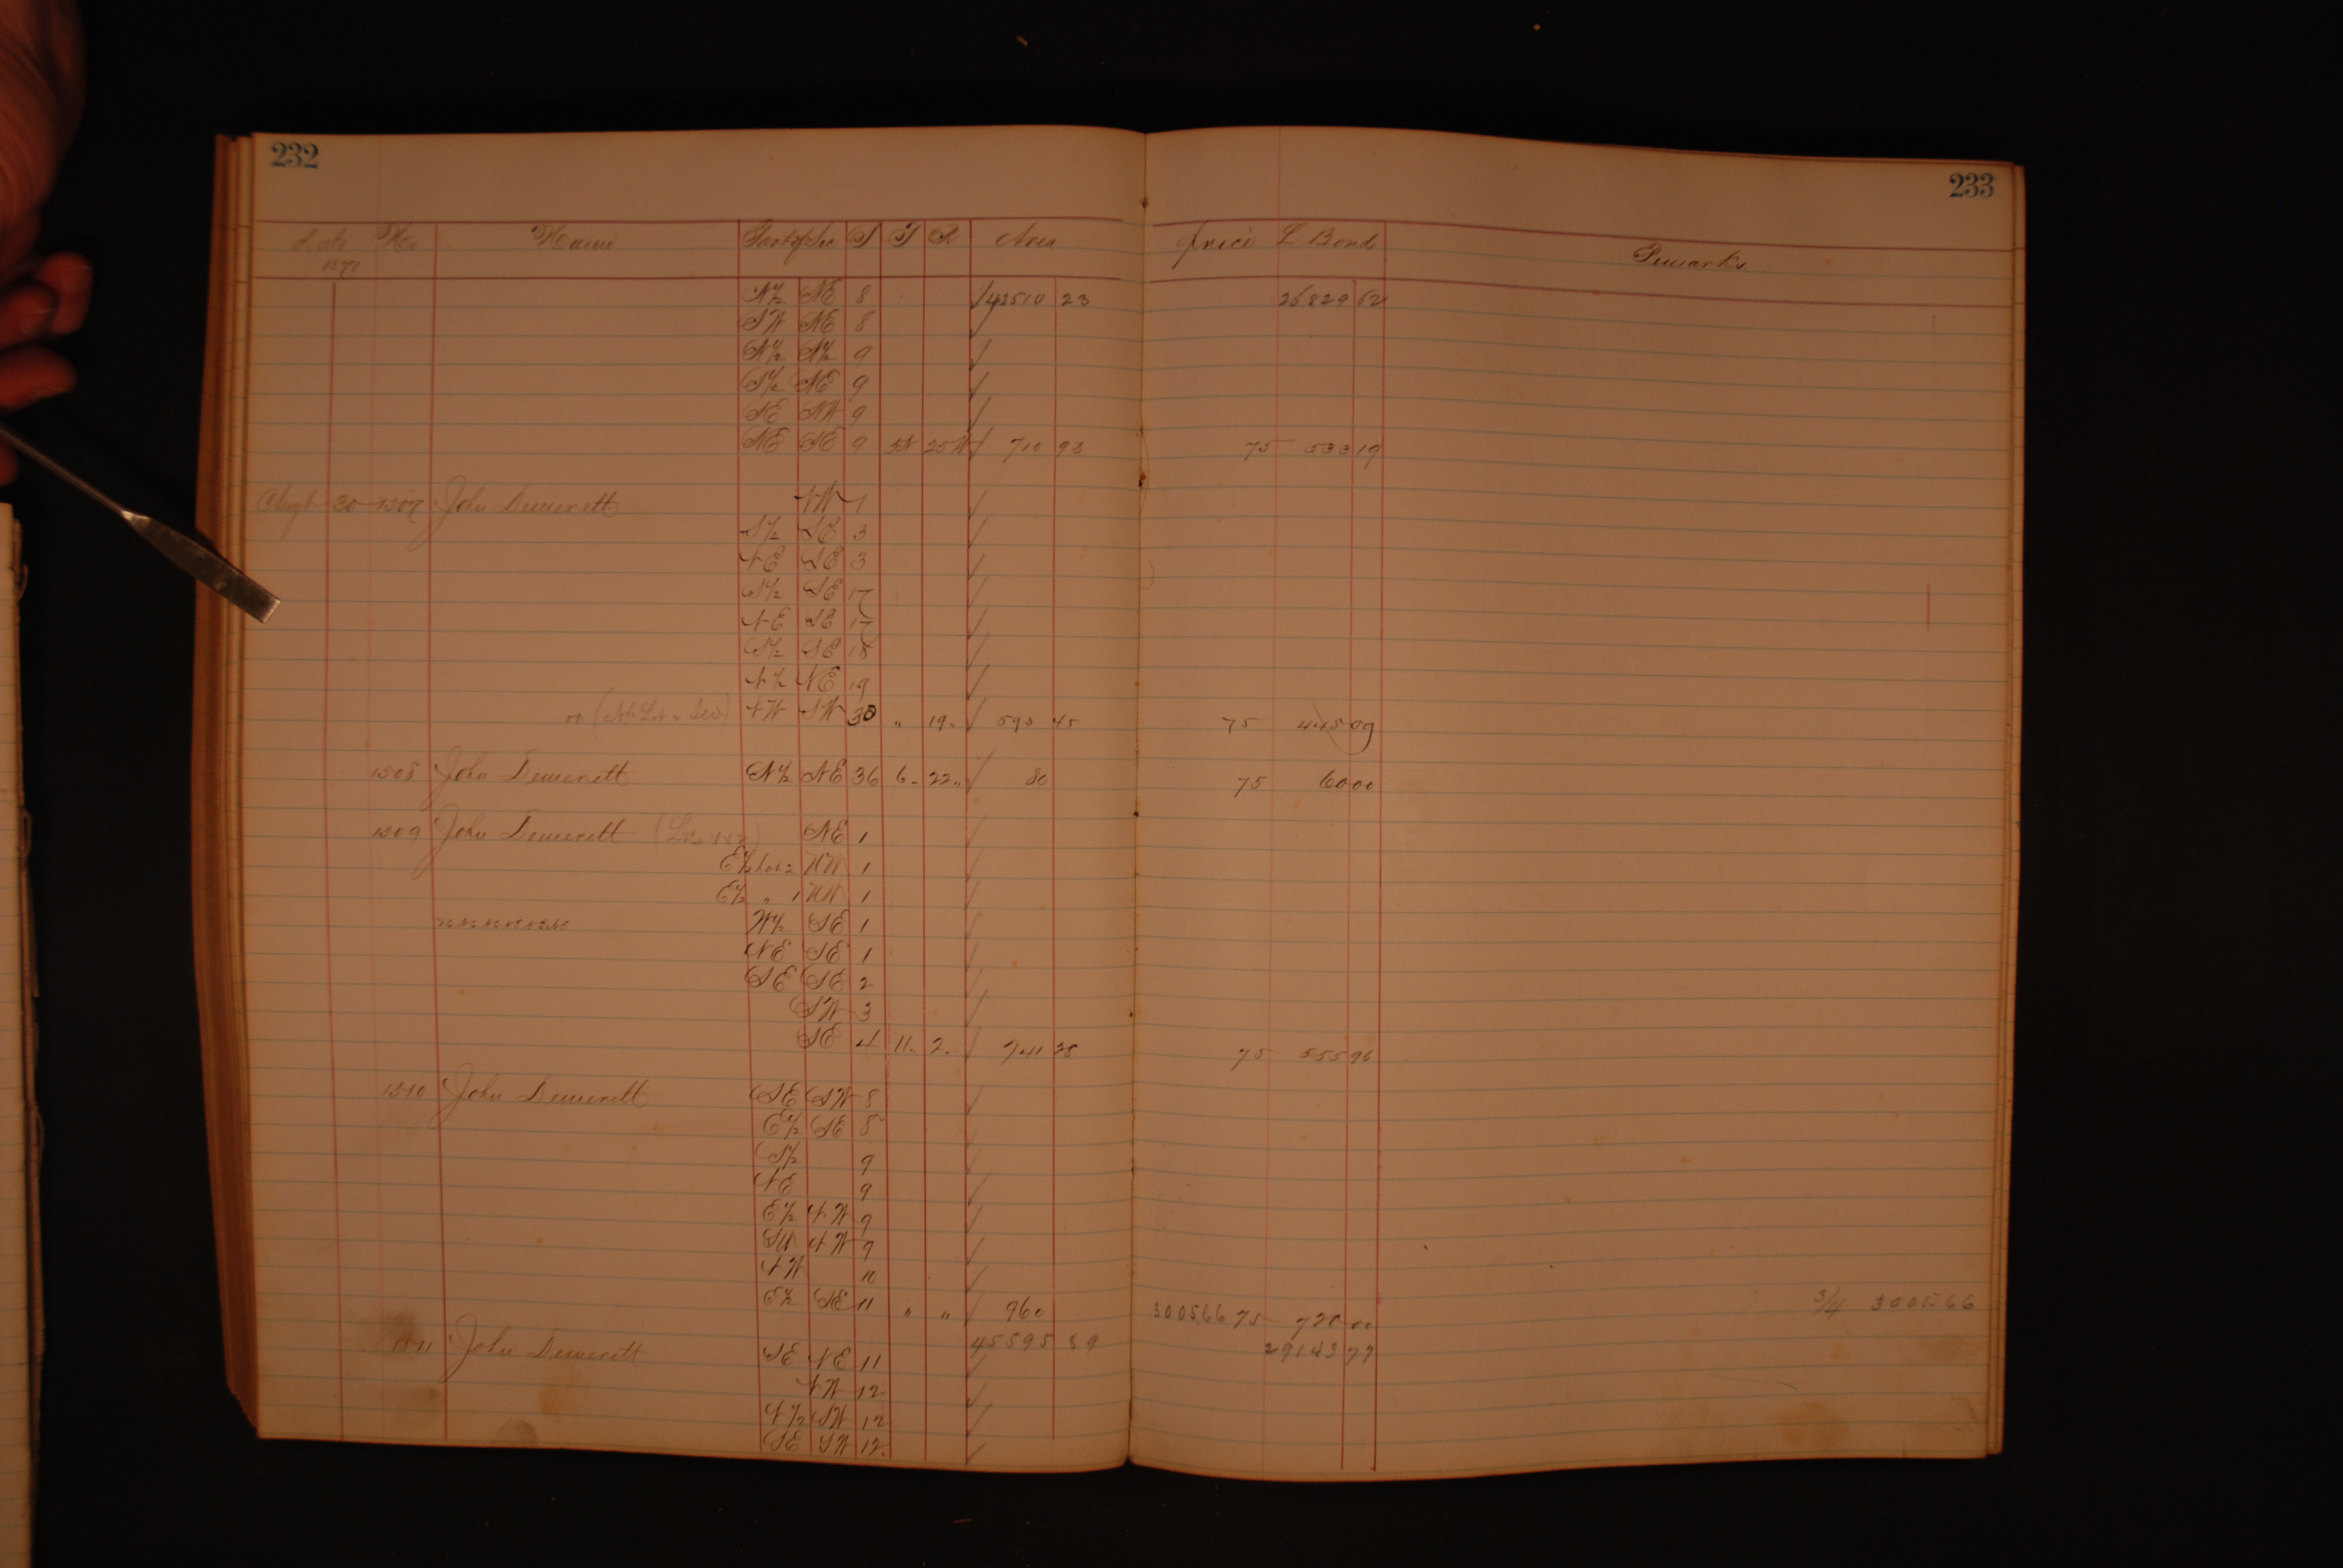 232
233
Date No Name Part of Sec S T R Area Price L. Bond Remarks
N½ NE 8 42510 23 26829 52
SW NE 8
N½ N½ 9
S½ NE 9
SE NW 9
NE SE 9 25W 710 93 75 533 19
Augt 30 1507 John Demerett NW 1
S½ SE 3
NE SE 3
S½ SE 17
NE SE 17
S½ SE 18
N½ NE 19
NW SW 30 " 19 " 593 45 75 445 09
1508 John Demerett N½ NE 36 6 " 22 " 80 75 60 00
1509 John Demerett NE 1
E½ Lot 2 NW 1
E½ " 1 NW 1
W½ SE 1
NE SE 1
SE SE 2
SW 3
SE 4 11 " 2 " 741 28 75 555 96
1510 John Demerett SE SW 8
E½ SE 8
S½ 9
NE 9
E½ NW 9
SW NW 9
NW 10
E½ SE 11 " " 960 3005,66 75 720 00 3/4 3005 66
45595 89 29143 77
1511 John Demerett SE NE 11
NW 12
N½ SW 12
SE SW 12